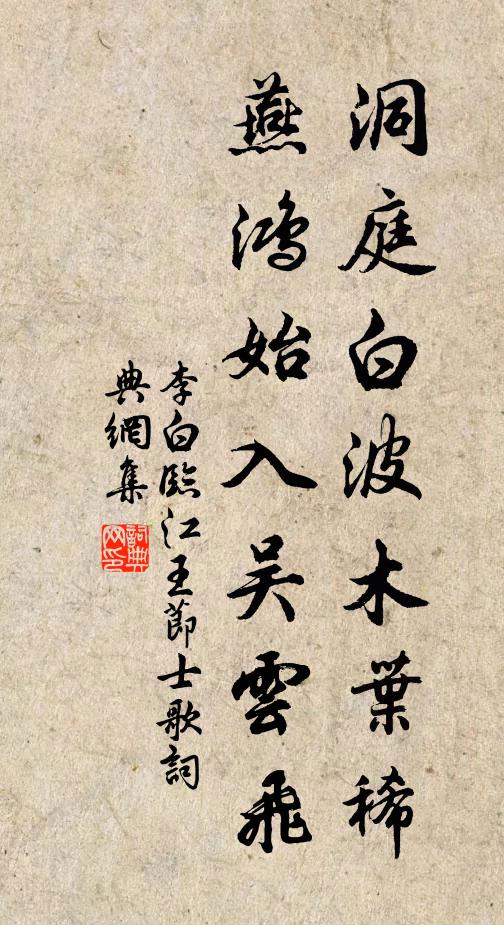 洞庭白波木葉稀
燕鴻始入吴雲飛
李白臨江王節士歌詞
典網集
詞典
网印